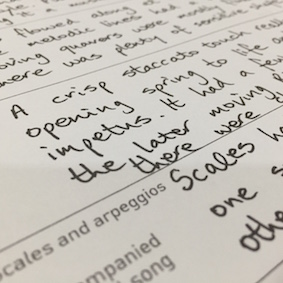 flowed along at
melodic lines had a
moving quavers were mostly
there was plenty of sensitive
A crisp staccato touch really
opening spring to life a
impetus. It had a few
the later moving
there were
Scales and arpeggios
Scales ha
one s
othe
ompanied
song